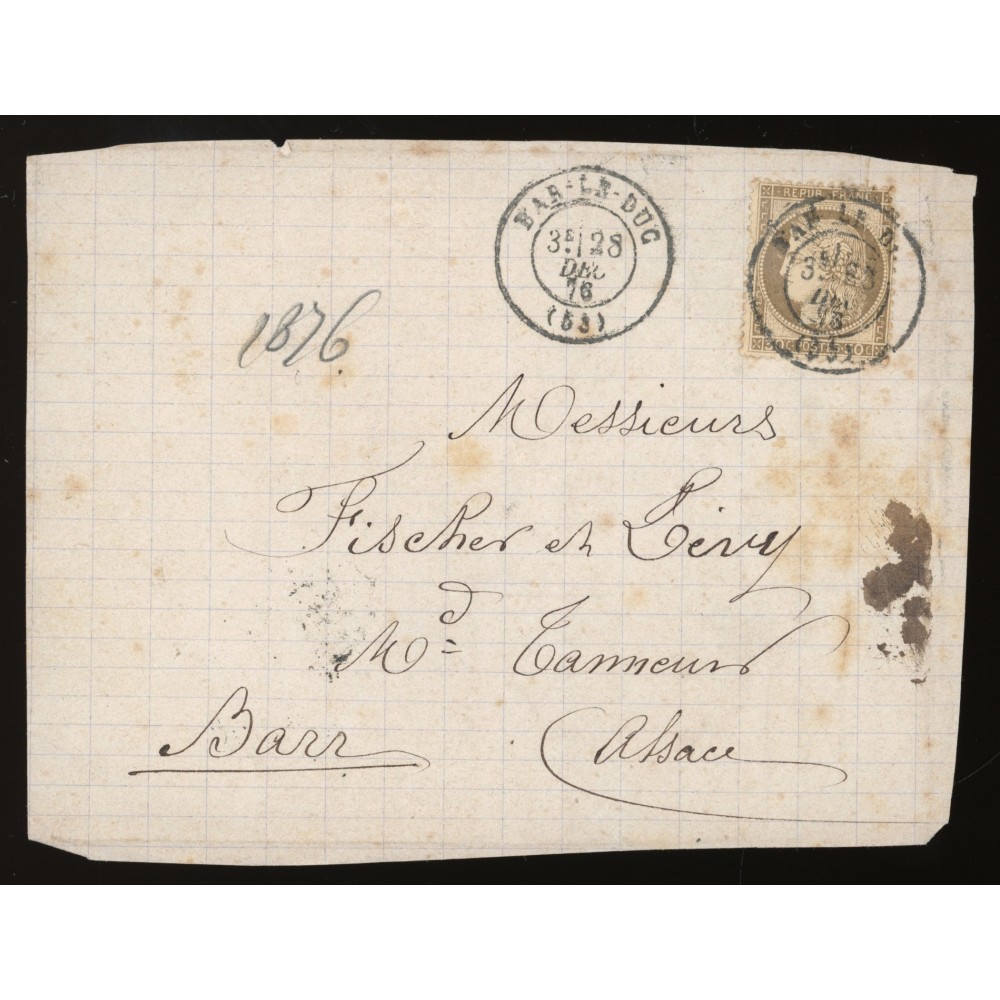 BAR-LE-DUC
3E 28
DEC
76
(53)
REPUB. FRANC
BAR LE D
30C POSTES 30C
1876
Messieurs
Fischer et Lévy
Md Tanneurs
Barr Alsace